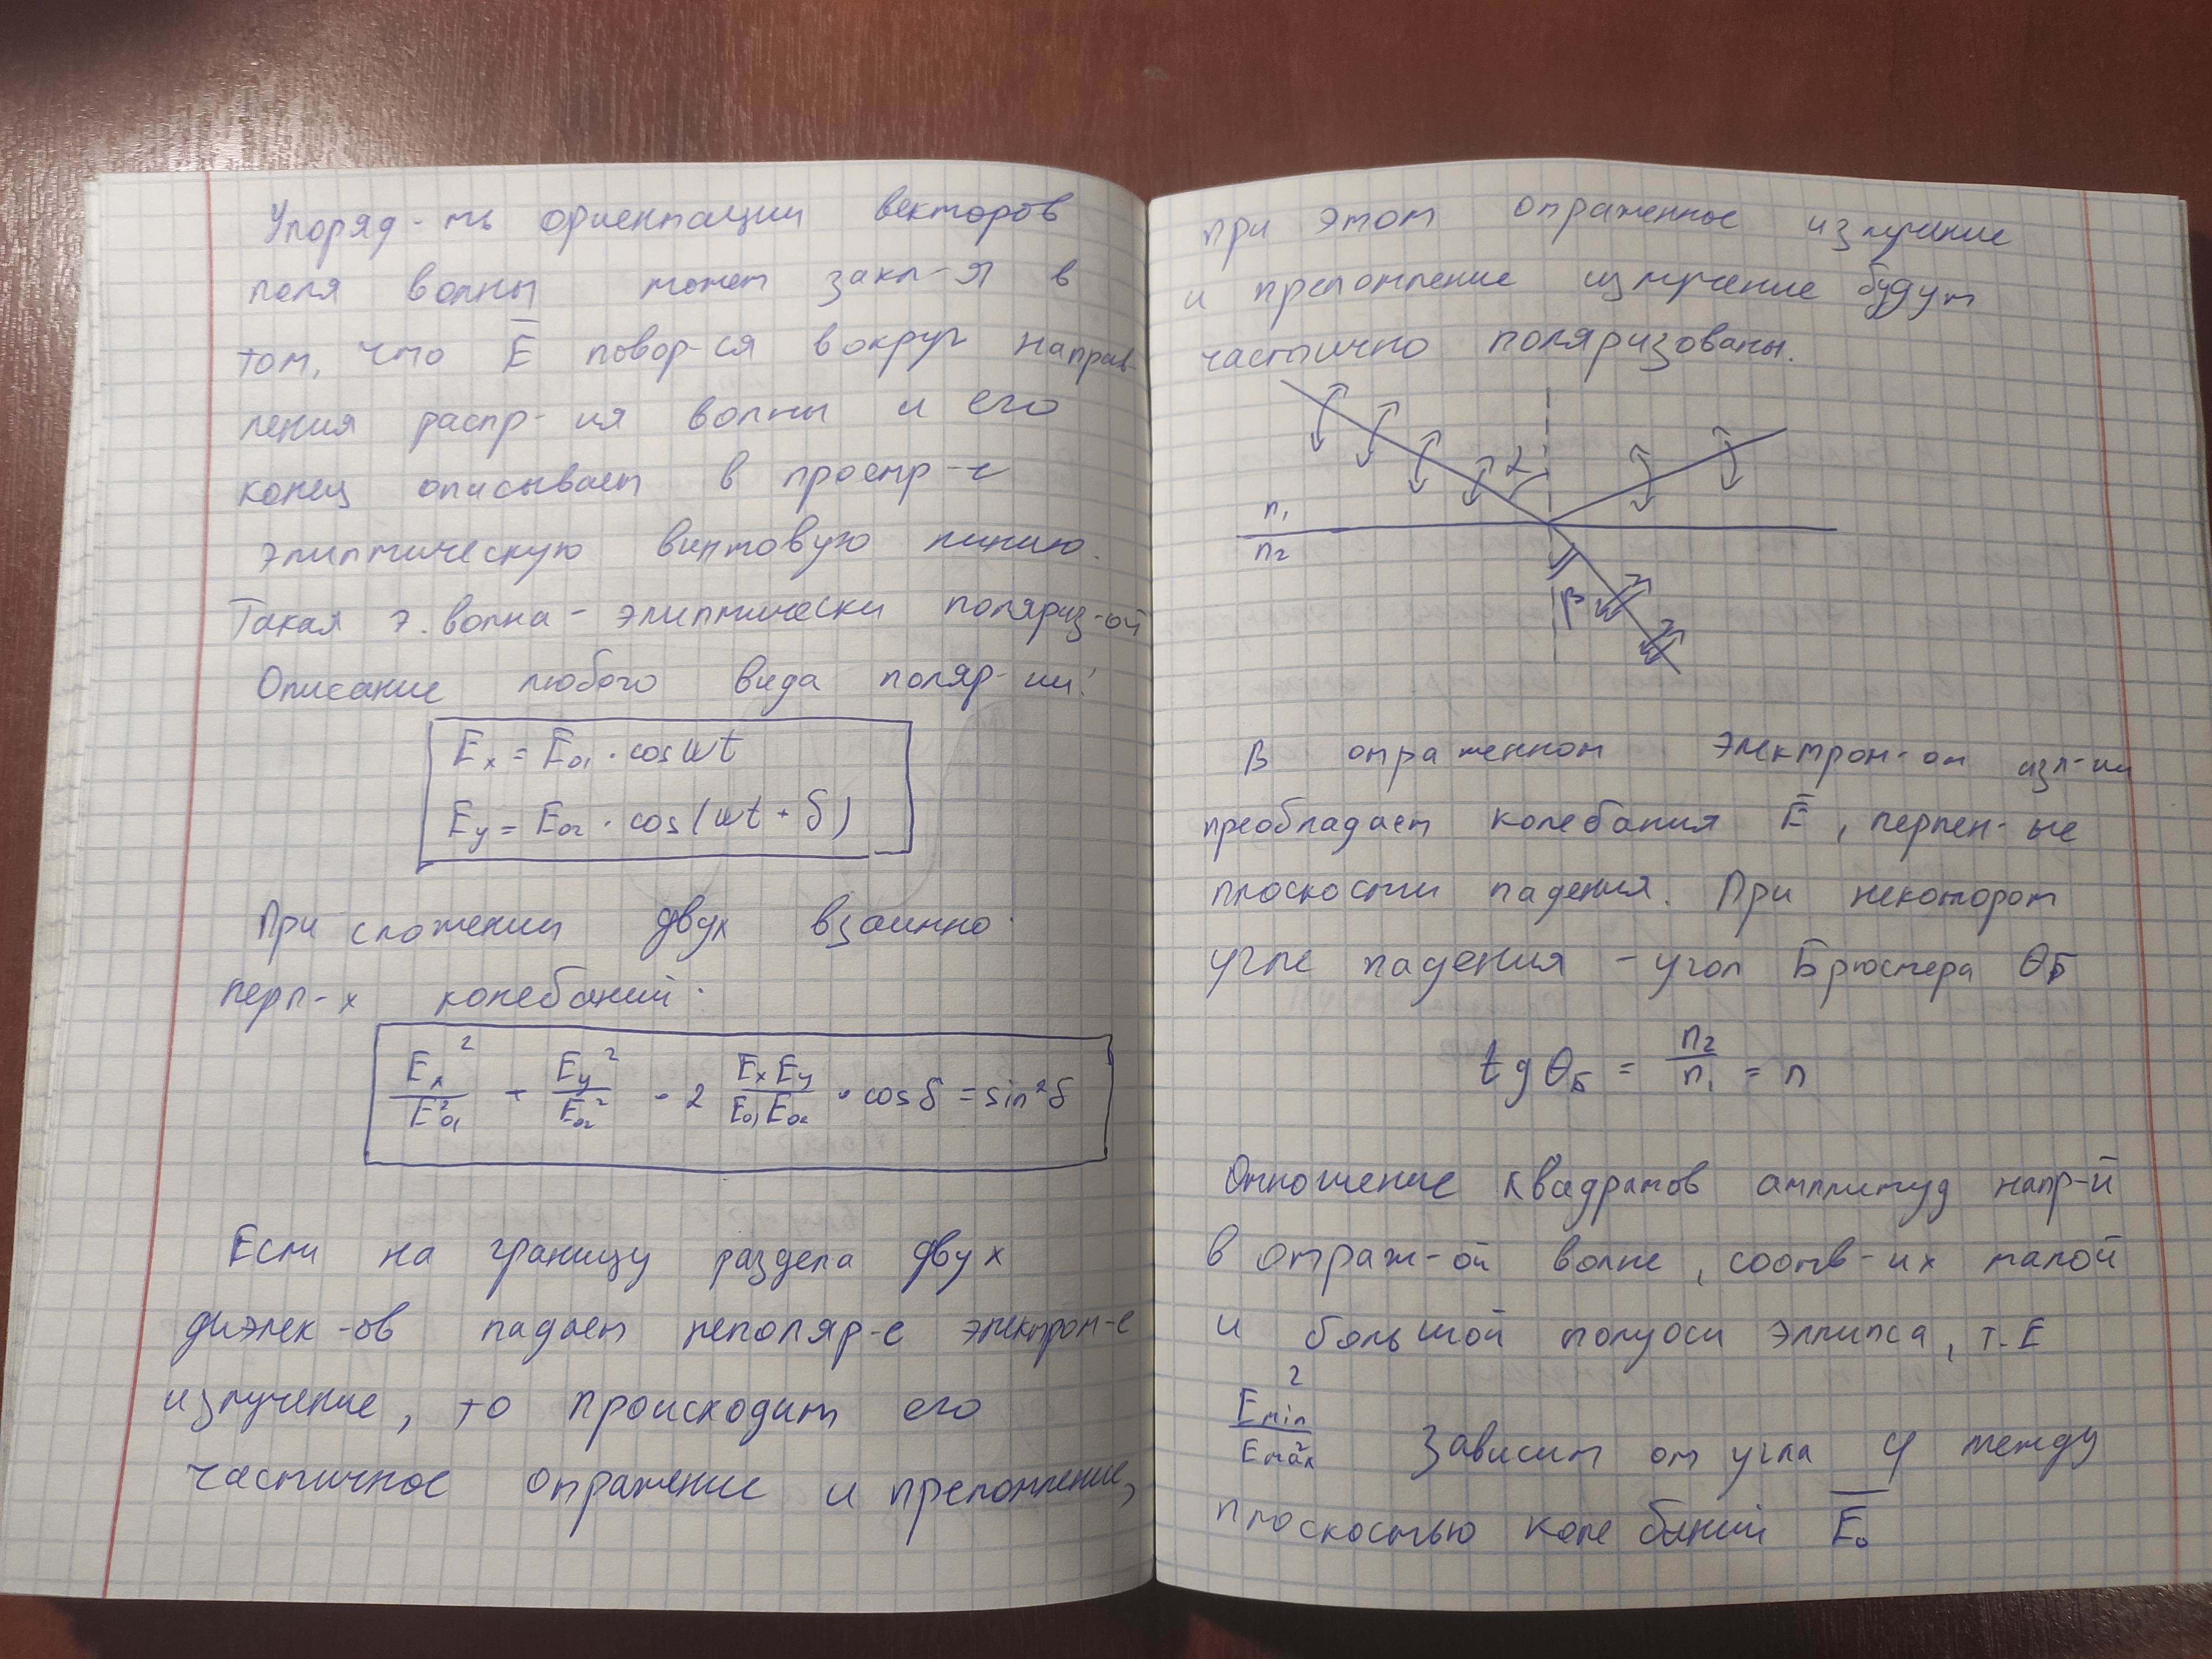 Упоряд-ть ориентации векторов
поля волны может закл-я в
том, что E̅ повор-ся вокруг направ-
ления распр-ия волны и его
конец описывает в простр-е
элиптическую винтовую линию.
Такая э. волна - элиптически поляриз-ой
Описание любого вида поляр-ии:
Eₓ = E₀₁ · cos ωt
Eᵧ = E₀₂ · cos(ωt + δ)
При сложении двух взаимно
перп-х колебаний:
Eₓ²/E₀₁² + Eᵧ²/E₀₂² - 2 EₓEᵧ/E₀₁E₀₂ · cos δ = sin²δ
Если на границу раздела двух
диэлек-ов падает неполяр-е электрон-е
излучение, то происходит его
частичное отражение и преломление,
при этом отраженное излучение
и преломление излучение будут
частично поляризованы.
α
n₁
n₂
β
В отраженном электрон-ом изл-ии
преобладает колебания E̅, перпен-ые
плоскости падения. При некотором
угле падения - угол Брюстера θБ
tg θБ = n₂/n₁ = n
Отношение квадратов амплитуд напр-й
в отраж-ой волне, соотв-их малой
и большой полуоси эллипса, т.е
Emin²/Emax² зависит от угла φ между
плоскостью колебаний E̅₀